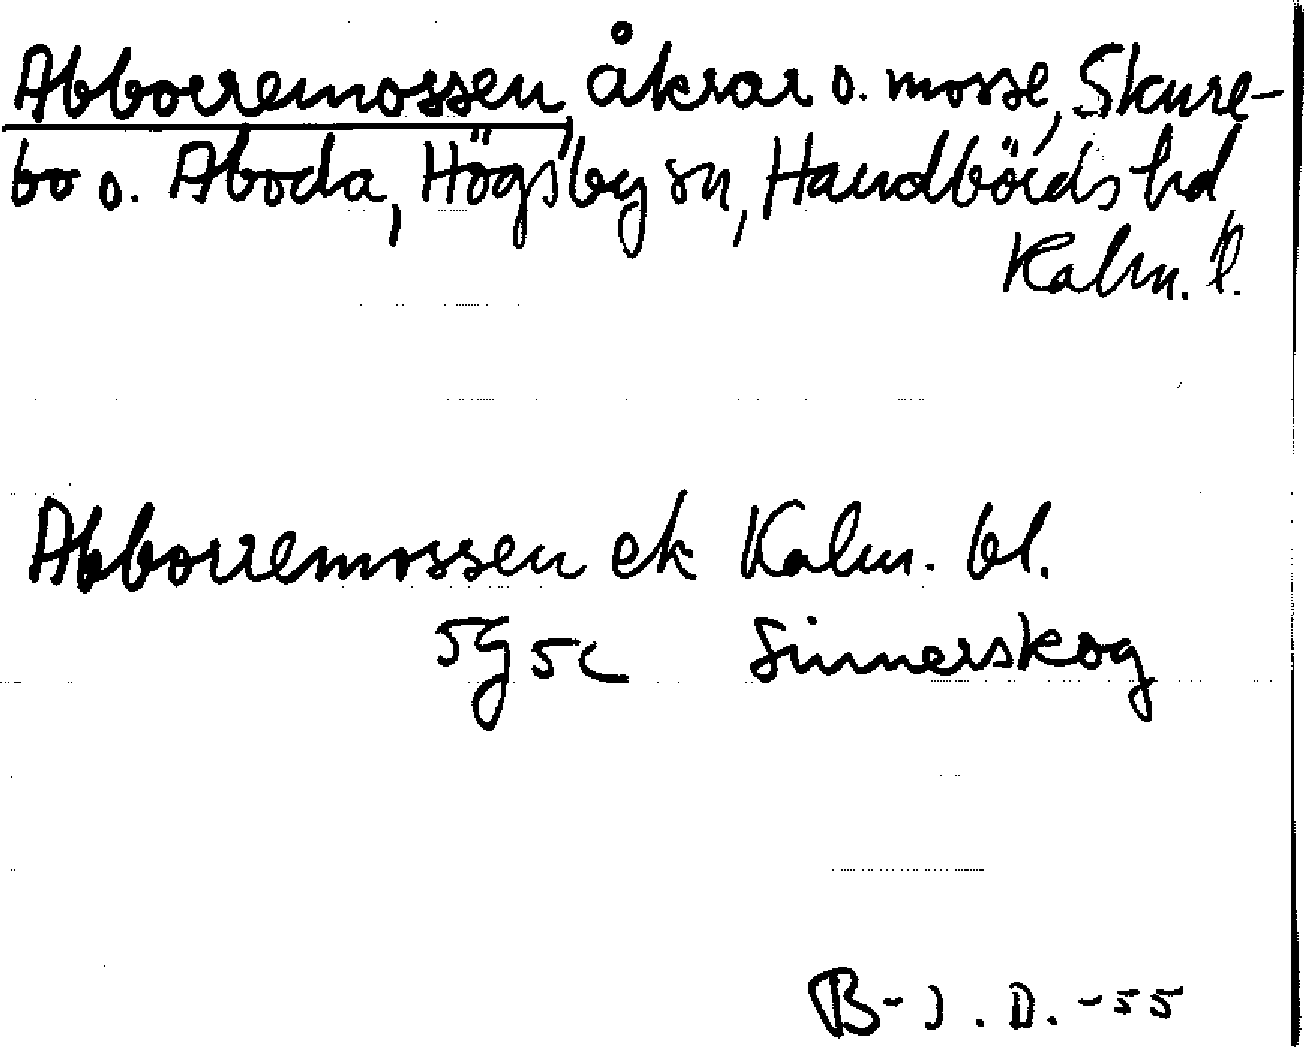 Abborremossen, åkrar o. mosse, Skure-
bo o. Aboda, Högsby sn, Handbörds hd,
Kalm. l.
Abborremossen ek Kalm. bl.
5g5c Sinnerskog
B-J.D. -55